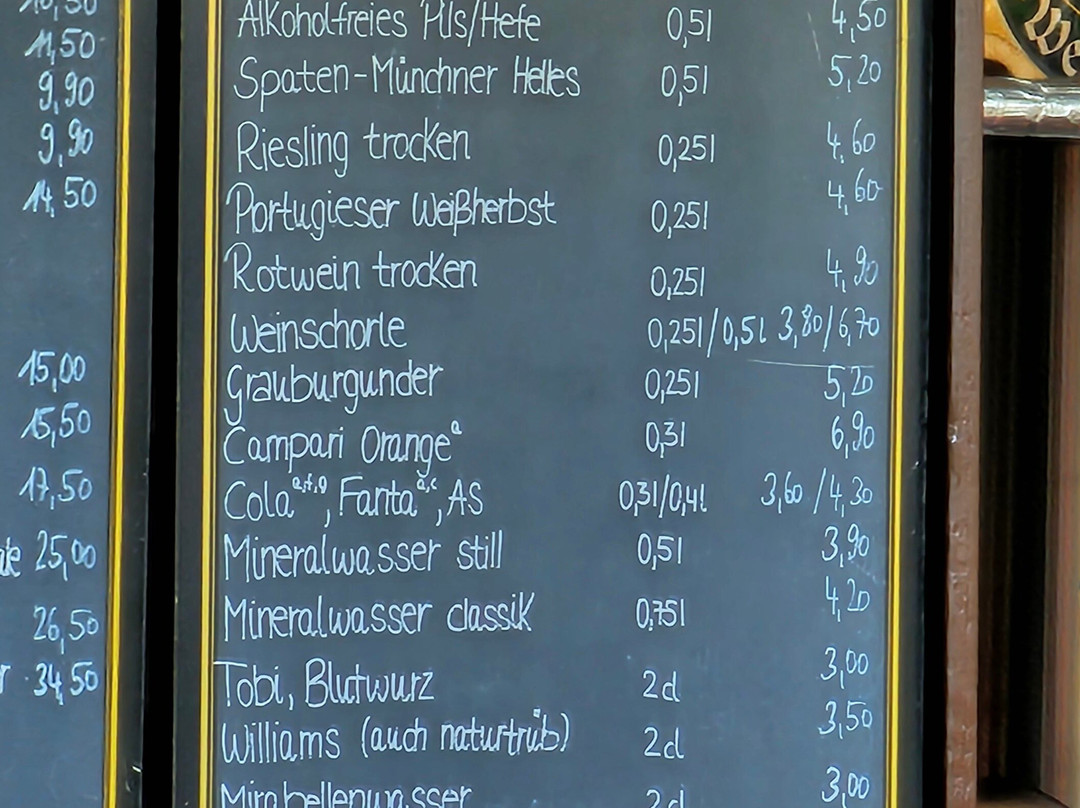 10,50
11,50
9,90
9,90
14,50
15,00
15,50
17,50
25,00
26,50
34,50
Alkoholfreies Pils/Hefe 0,5l 4,50
Spaten-Münchner Helles 0,5l 5,20
Riesling trocken 0,25l 4,60
Portugieser Weißherbst 0,25l 4,60
Rotwein trocken 0,25l 4,90
Weinschorle 0,25l/0,5l 3,80/6,70
Grauburgunder 0,25l 5,20
Campari Orange a 0,3l 6,90
Cola, Fanta, AS 0,3l/0,4l 3,60 /4,30
Mineralwasser still 0,5l 3,90
Mineralwasser classik 0,75l 4,20
Tobi, Blutwurz 2cl 3,00
Williams (auch naturtrüb) 2cl 3,50
Mirabellenwasser 2cl 3,00